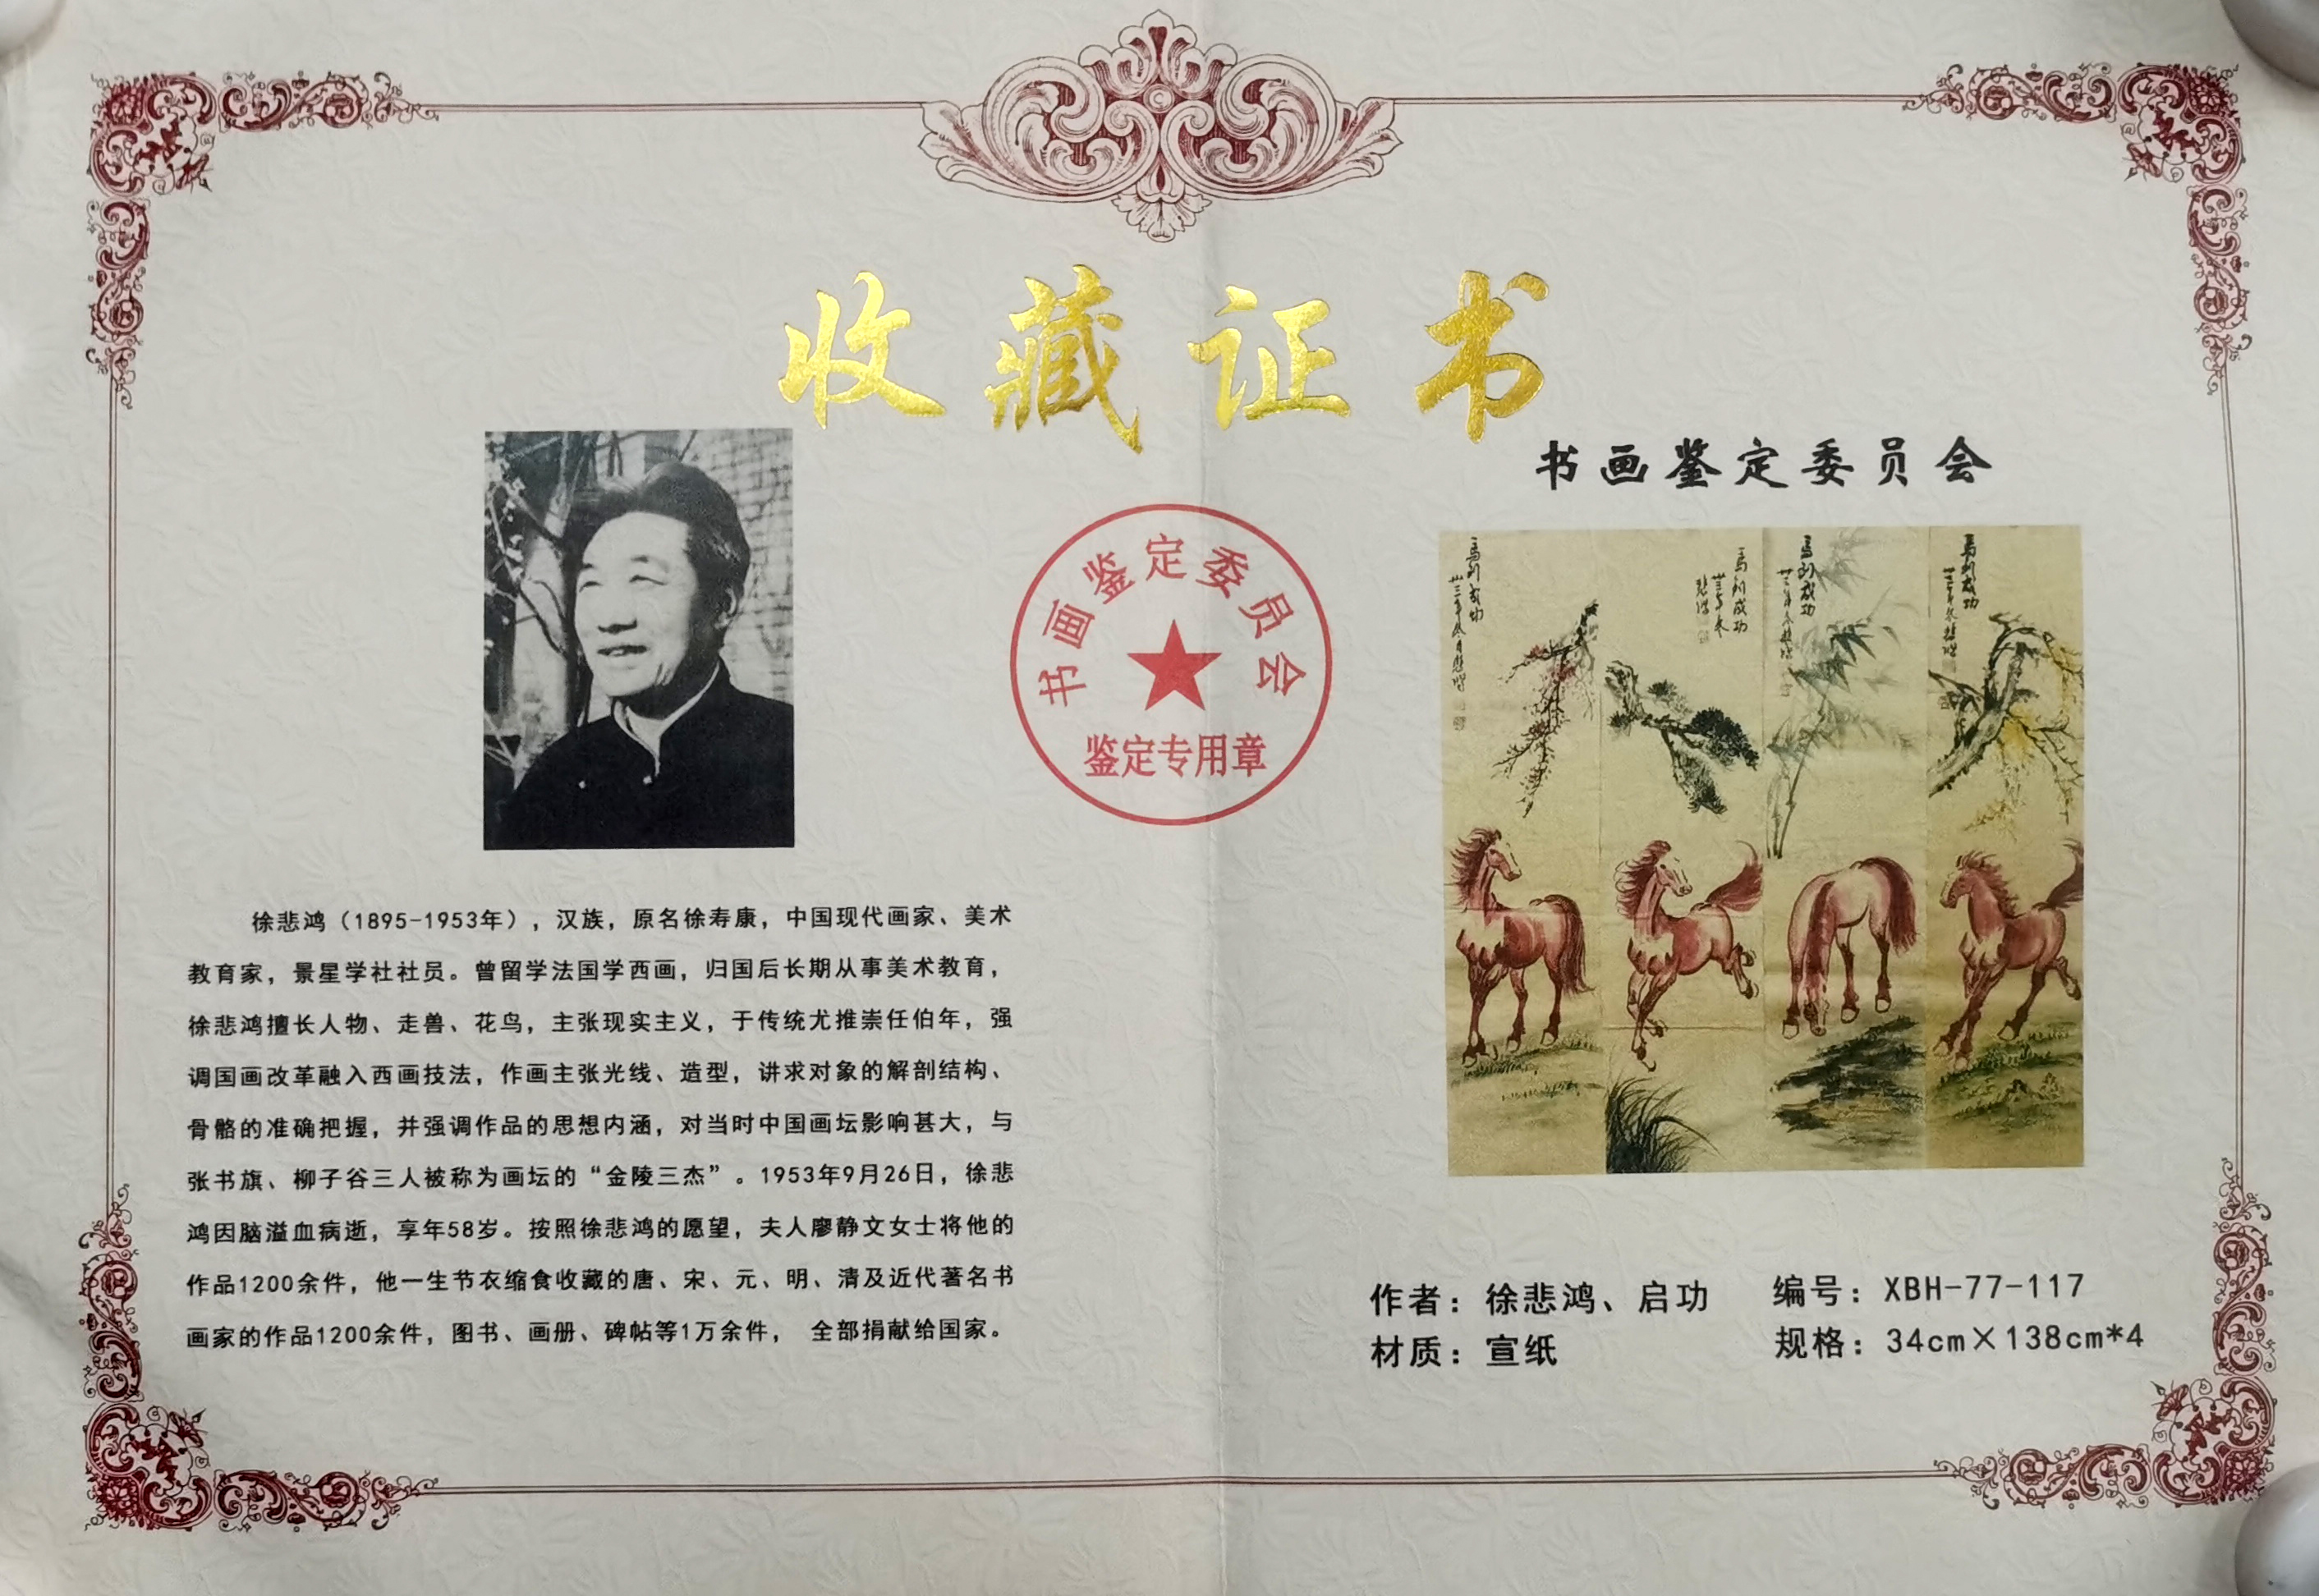 收藏证书
书画鉴定委员会
书画鉴定委员会
鉴定专用章
徐悲鸿（1895-1953年），汉族，原名徐寿康，中国现代画家、美术
教育家，景星学社社员。曾留学法国学西画，归国后长期从事美术教育，
徐悲鸿擅长人物、走兽、花鸟，主张现实主义，于传统尤推崇任伯年，强
调国画改革融入西画技法，作画主张光线、造型，讲求对象的解剖结构、
骨骼的准确把握，并强调作品的思想内涵，对当时中国画坛影响甚大，与
张书旗、柳子谷三人被称为画坛的“金陵三杰”。1953年9月26日，徐悲
鸿因脑溢血病逝，享年58岁。按照徐悲鸿的愿望，夫人廖静文女士将他的
作品1200余件，他一生节衣缩食收藏的唐、宋、元、明、清及近代著名书
画家的作品1200余件，图书、画册、碑帖等1万余件， 全部捐献给国家。
馬到成功
馬到成功
馬到成功
馬到成功
作者：徐悲鸿、启功
编号：XBH-77-117
材质：宣纸
规格：34cm×138cm*4